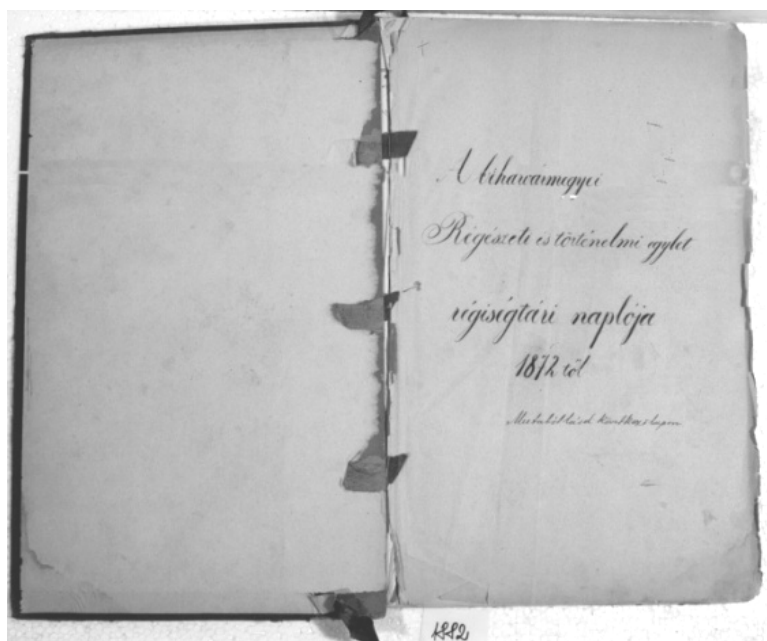 A biharvármegyei
Régészeti és történelmi egylet
régiségtári naplója
1872 től
1882